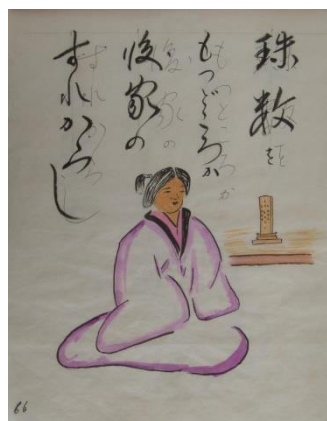 珠数を
もつどころか
後家の
すれからし
66